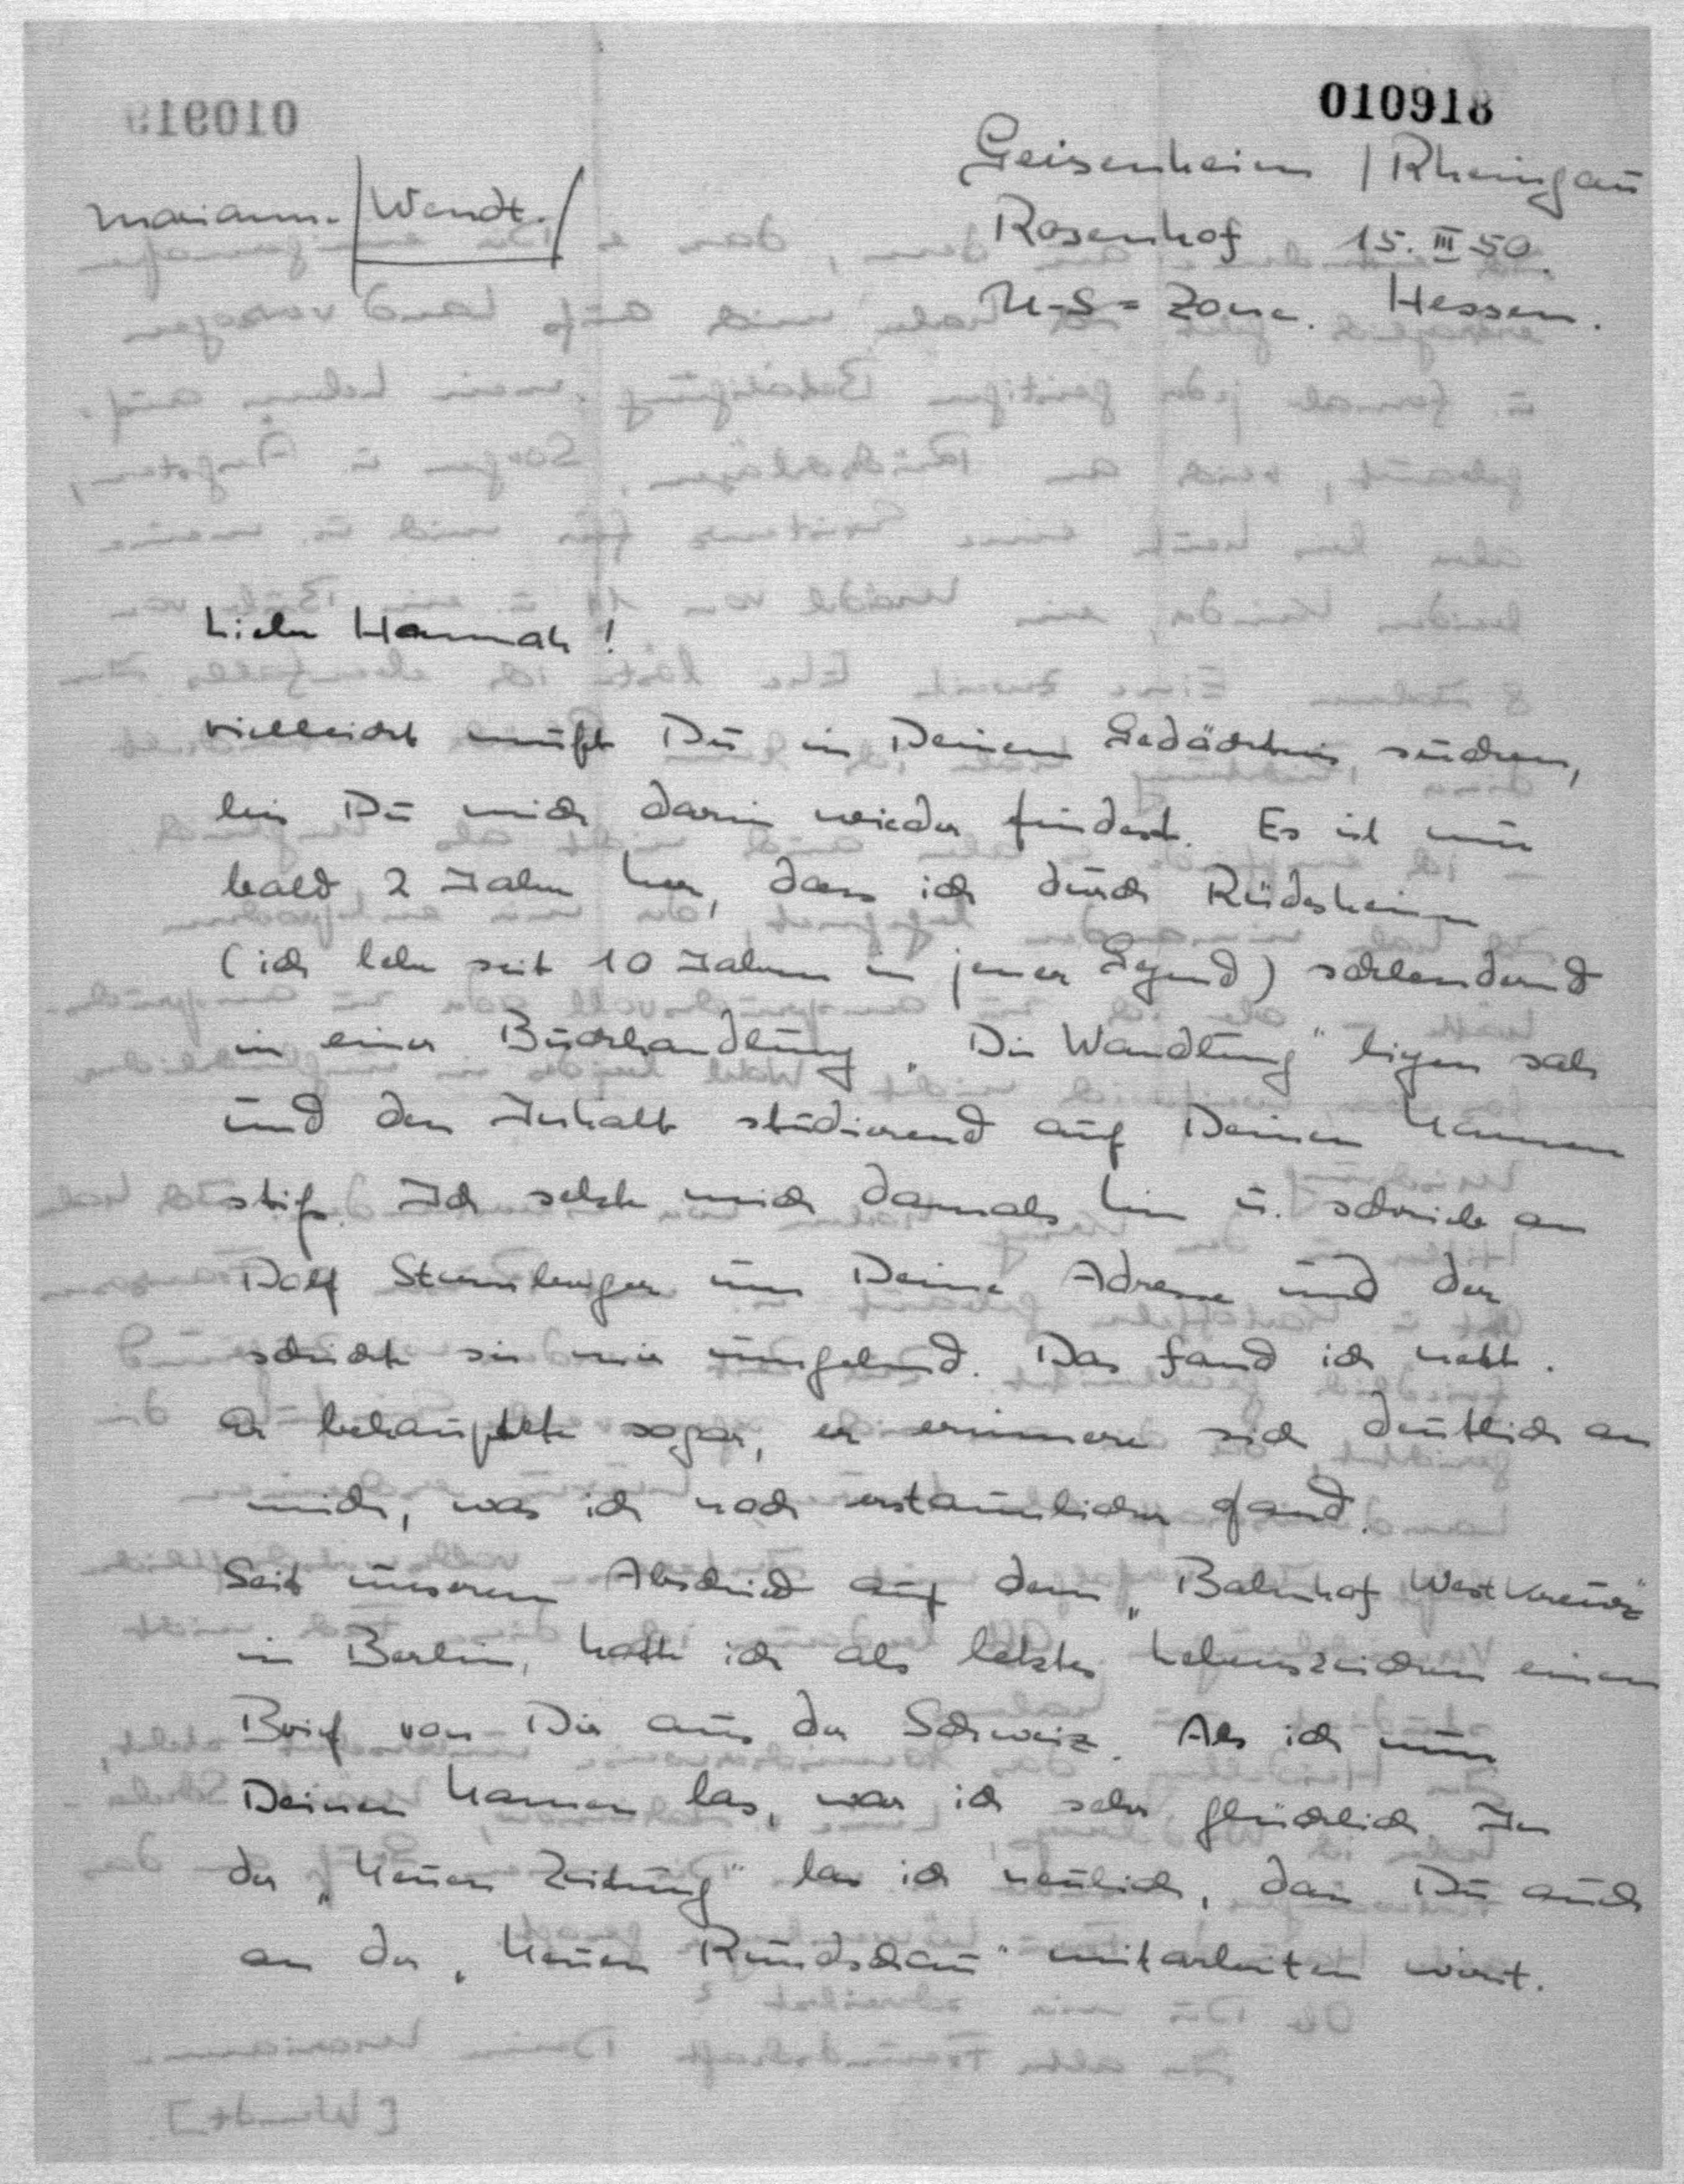 010918
Geisenheim / Rheingau
Marianne Wendt.
Rosenhof 15. III 50.
U-S = Zone. Hessen.
Liebe Hannah!
vielleicht mußt Du in Deinem Gedächtnis suchen,
bis Du mich darin wieder findest. Es ist nun
bald 2 Jahre her, dass ich durch Rüdesheim
(ich lebe seit 10 Jahren in jener Gegend) schlendernd
in einer Buchhandlung „Die Wandlung" liegen sah
und den Inhalt studierend auf Deinen Namen
stieß. Ich setzte mich damals hin u. schrieb an
Dolf Sternberger um Deine Adresse und der
schickte sie mir umgehend. Das fand ich nett.
Er behauptete sogar, er erinnere sich deutlich an
mich, was ich noch erstaunlicher fand.
Seit unserem Abschied auf dem „Bahnhof Westkreuz"
in Berlin, hatte ich als letztes Lebenszeichen einen
Brief von Dir aus der Schweiz. Als ich nun
Deinen Namen las, war ich sehr glücklich. In
der „Neuen Zeitung" las ich neulich, dass Du auch
an der „Neuen Rundschau" mitarbeiten wirst.